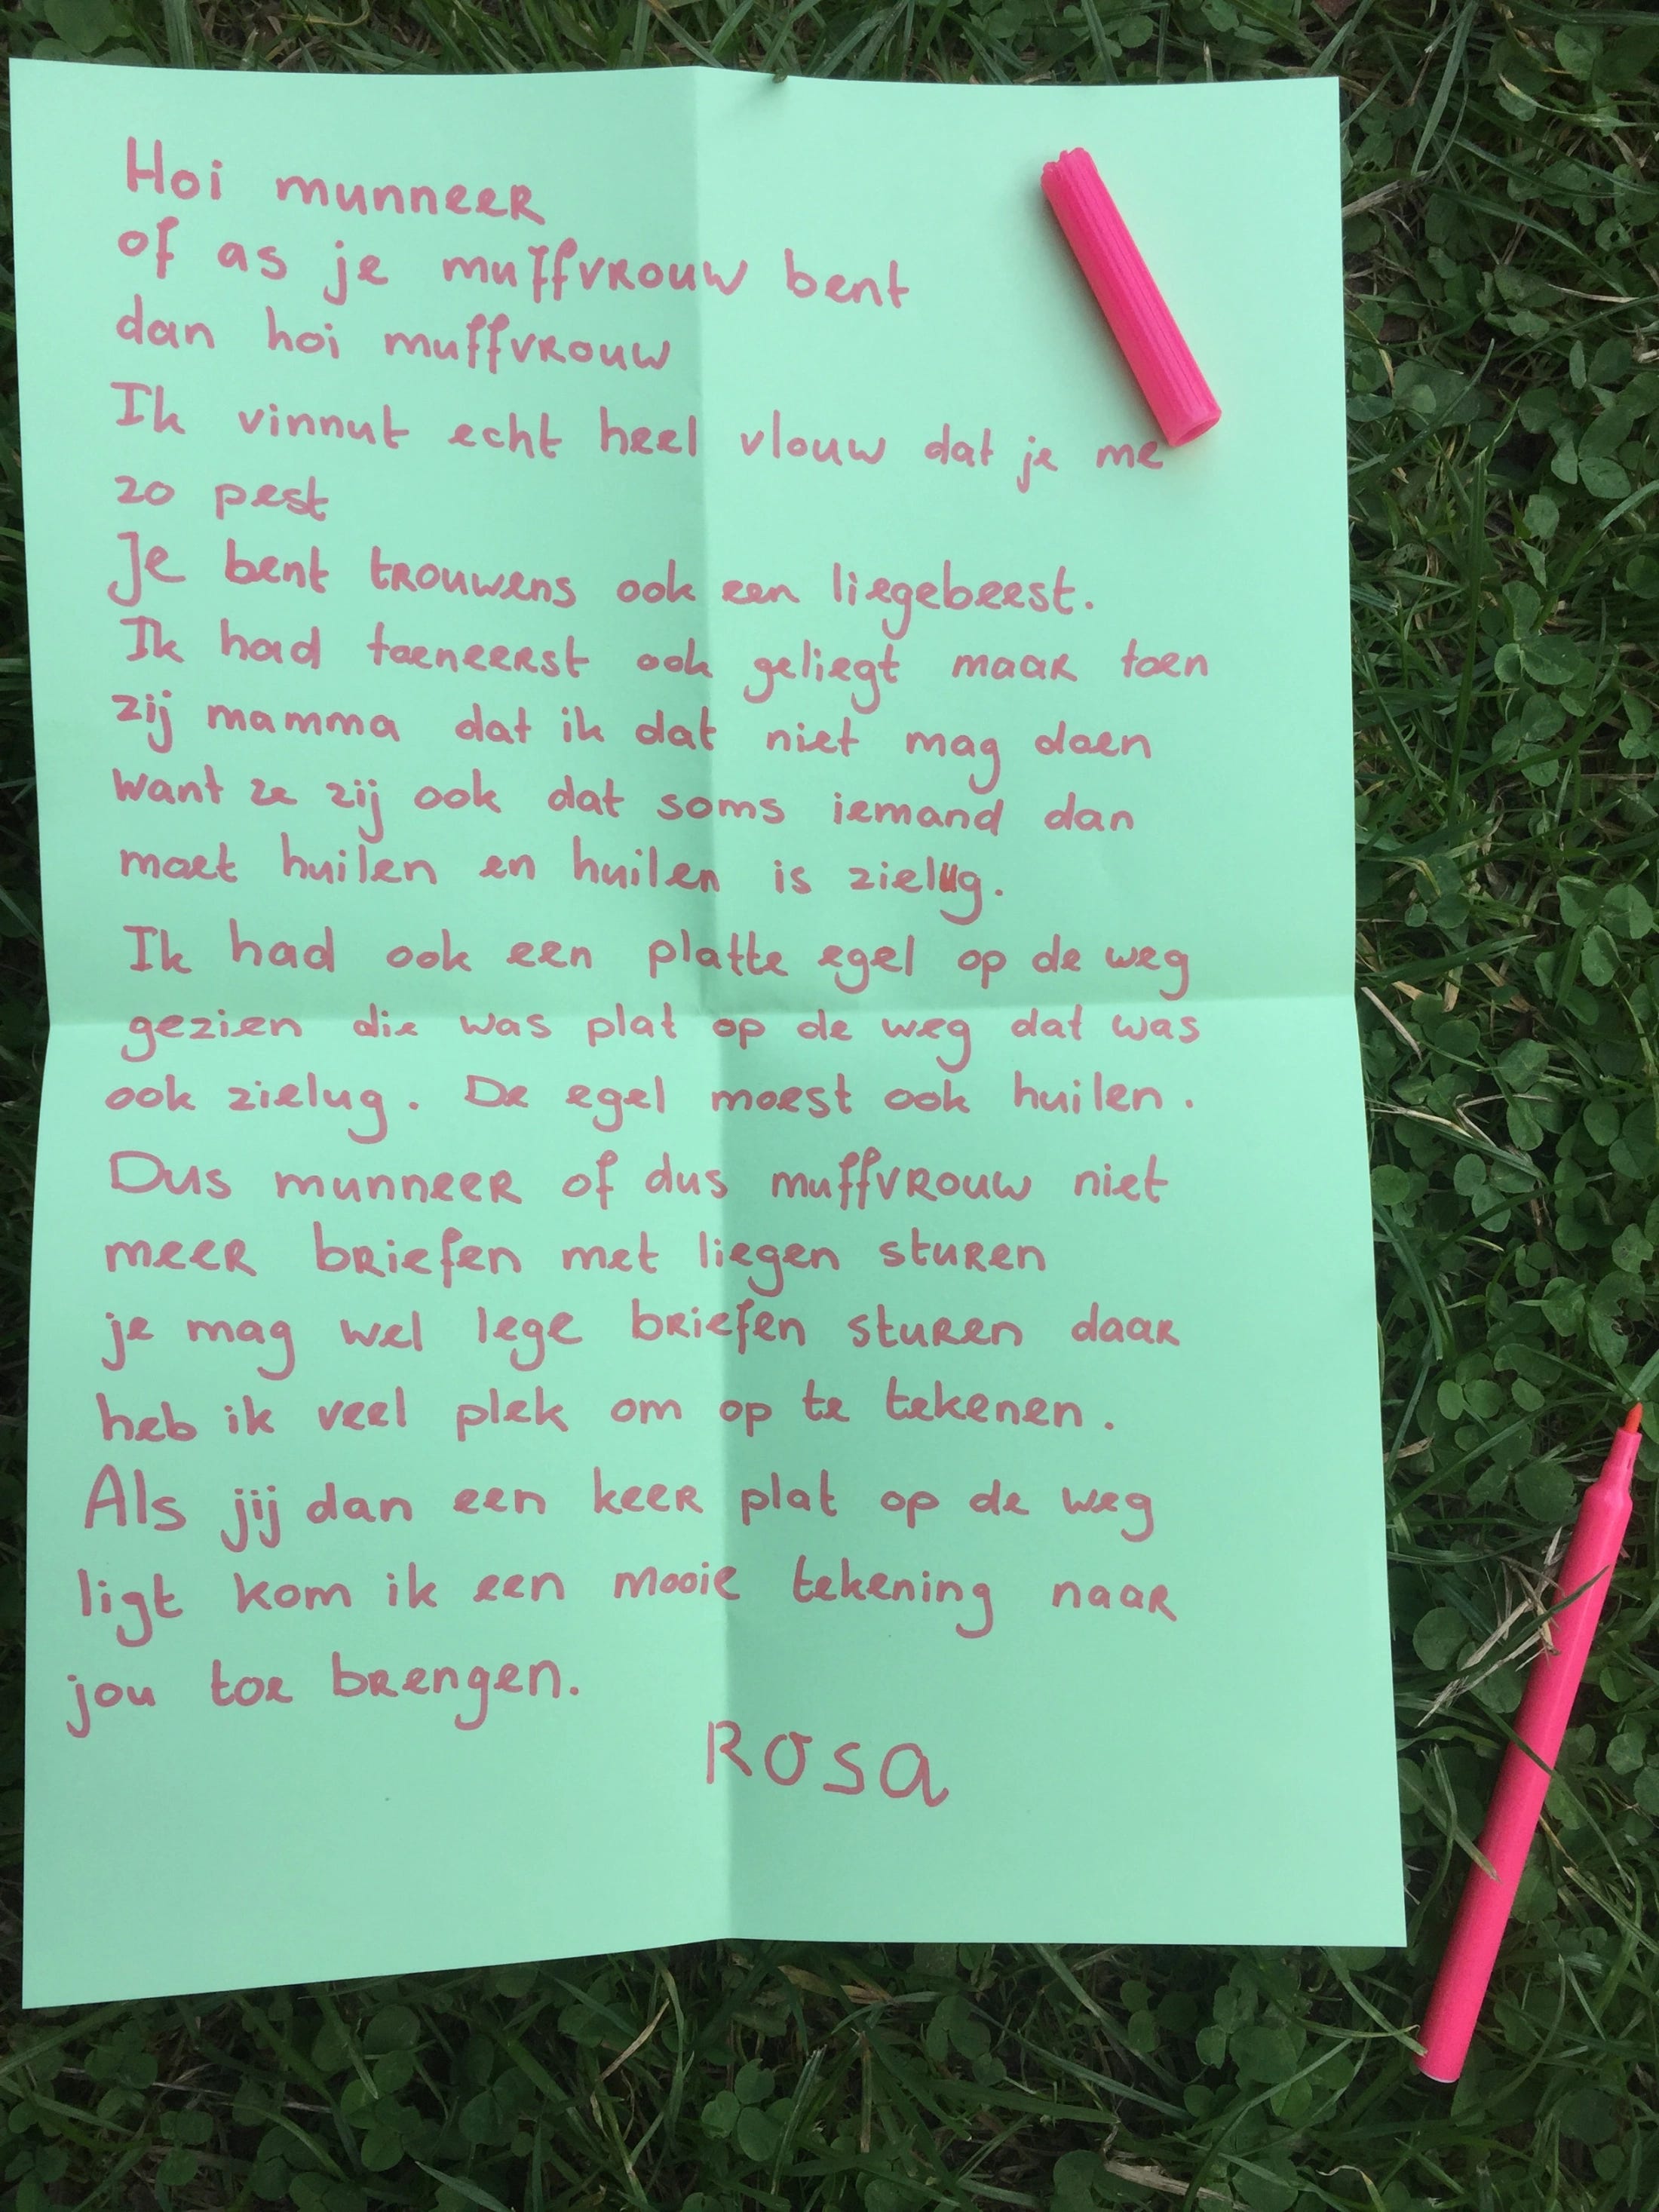 Hoi munneer
of as je muffvrouw bent
dan hoi muffvrouw
Ik vinnut echt heel vlouw dat je me
zo pest
Je bent trouwens ook een liegebeest.
Ik had toeneerst ook geliegt maar toen
zij mamma dat ik dat niet mag doen
want ze zij ook dat soms iemand dan
moet huilen en huilen is zielug.
Ik had ook een platte egel op de weg
gezien die was plat op de weg dat was
ook zielug. De egel moest ook huilen.
Dus munneer of dus muffvrouw niet
meer briefen met liegen sturen
je mag wel lege briefen sturen daar
heb ik veel plek om op te tekenen.
Als jij dan een keer plat op de weg
ligt kom ik een mooie tekening naar
jou toe brengen.
Rosa